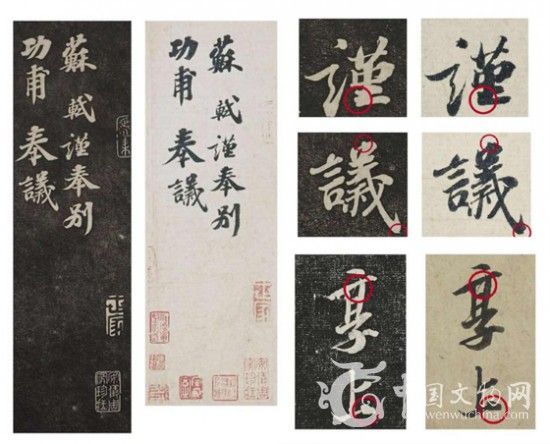 蘇軾謹奉別
功甫奉議
蘇軾謹奉別
功甫奉議
謹
謹
議
議
享上
享上
中国文物网
wenwuchina.com